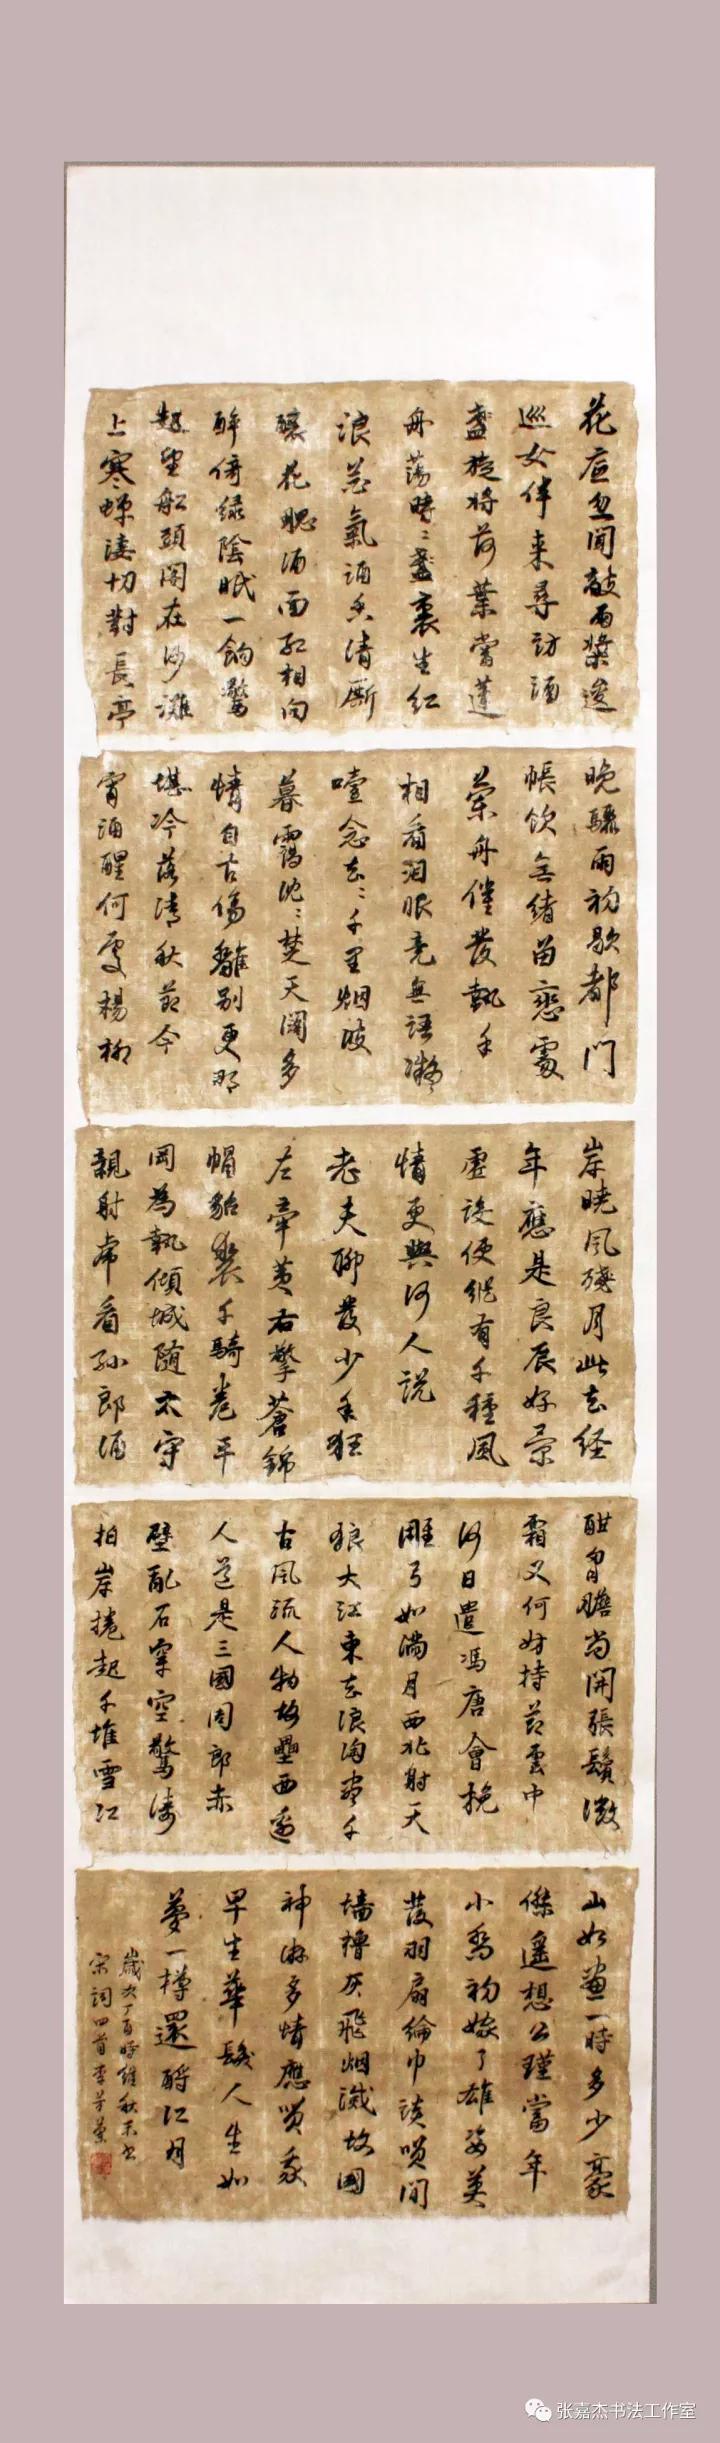 花底忽聞敲兩槳逡
巡女伴来尋訪酒
盞旋将荷葉當蓮
舟蕩時〻盞裏生紅
浪花氣酒香清厮
釀花腮酒面紅相向
醉倚緑陰眠一餉驚
起望船頭閣在沙灘
上寒蟬淒切對長亭
晚驟雨初歇都門
帳飲無緒留戀處
蘭舟催發執手
相看淚眼竟無語凝
噎念去〻千里烟波
暮靄沈〻楚天闊多
情自古傷離别更那
堪冷落清秋節今
宵酒醒何處楊柳
岸曉風殘月此去经
年應是良辰好景
虛設便縱有千種風
情更與何人説
老夫聊發少年狂
左牽黄右擎蒼錦
帽貂裘千騎卷平
岡為執傾城随太守
親射虎看孫郎酒
酣胷膽尚開張鬢微
霜又何妨持節雲中
何日遣馮唐會挽
雕弓如滿月西北射天
狼大江東去浪淘盡千
古風流人物故壘西邊
人道是三國周郎赤
壁亂石穿空驚濤
拍岸捲起千堆雪江
山如畫一時多少豪
傑遥想公瑾當年
小喬初嫁了雄姿英
發羽扇綸巾談笑間
墙櫓灰飛烟滅故國
神遊多情應笑我
早生華髮人生如
夢一樽還酹江月
歲次丁酉時維秋末書
宋詞四首李芳蘭
张嘉杰书法工作室